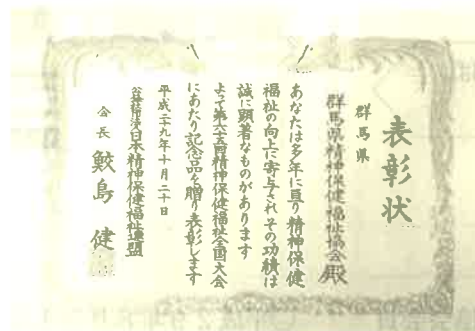 表彰状
群馬県
群馬県精神保健福祉協会殿
あなたは多年に亘り精神保健
福祉の向上に寄与されその功績は
誠に顕著なものがあります
よって第六十五回精神保健福祉全国大会
にあたり記念品を贈り表彰します
平成二十九年十月二十日
公益社団法人日本精神保健福祉連盟
会長 鮫島 健